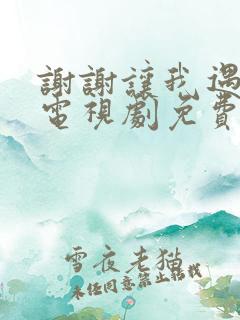 謝謝讓我遇
電視劇免費
雪夜老猫
未任同意禁止转载